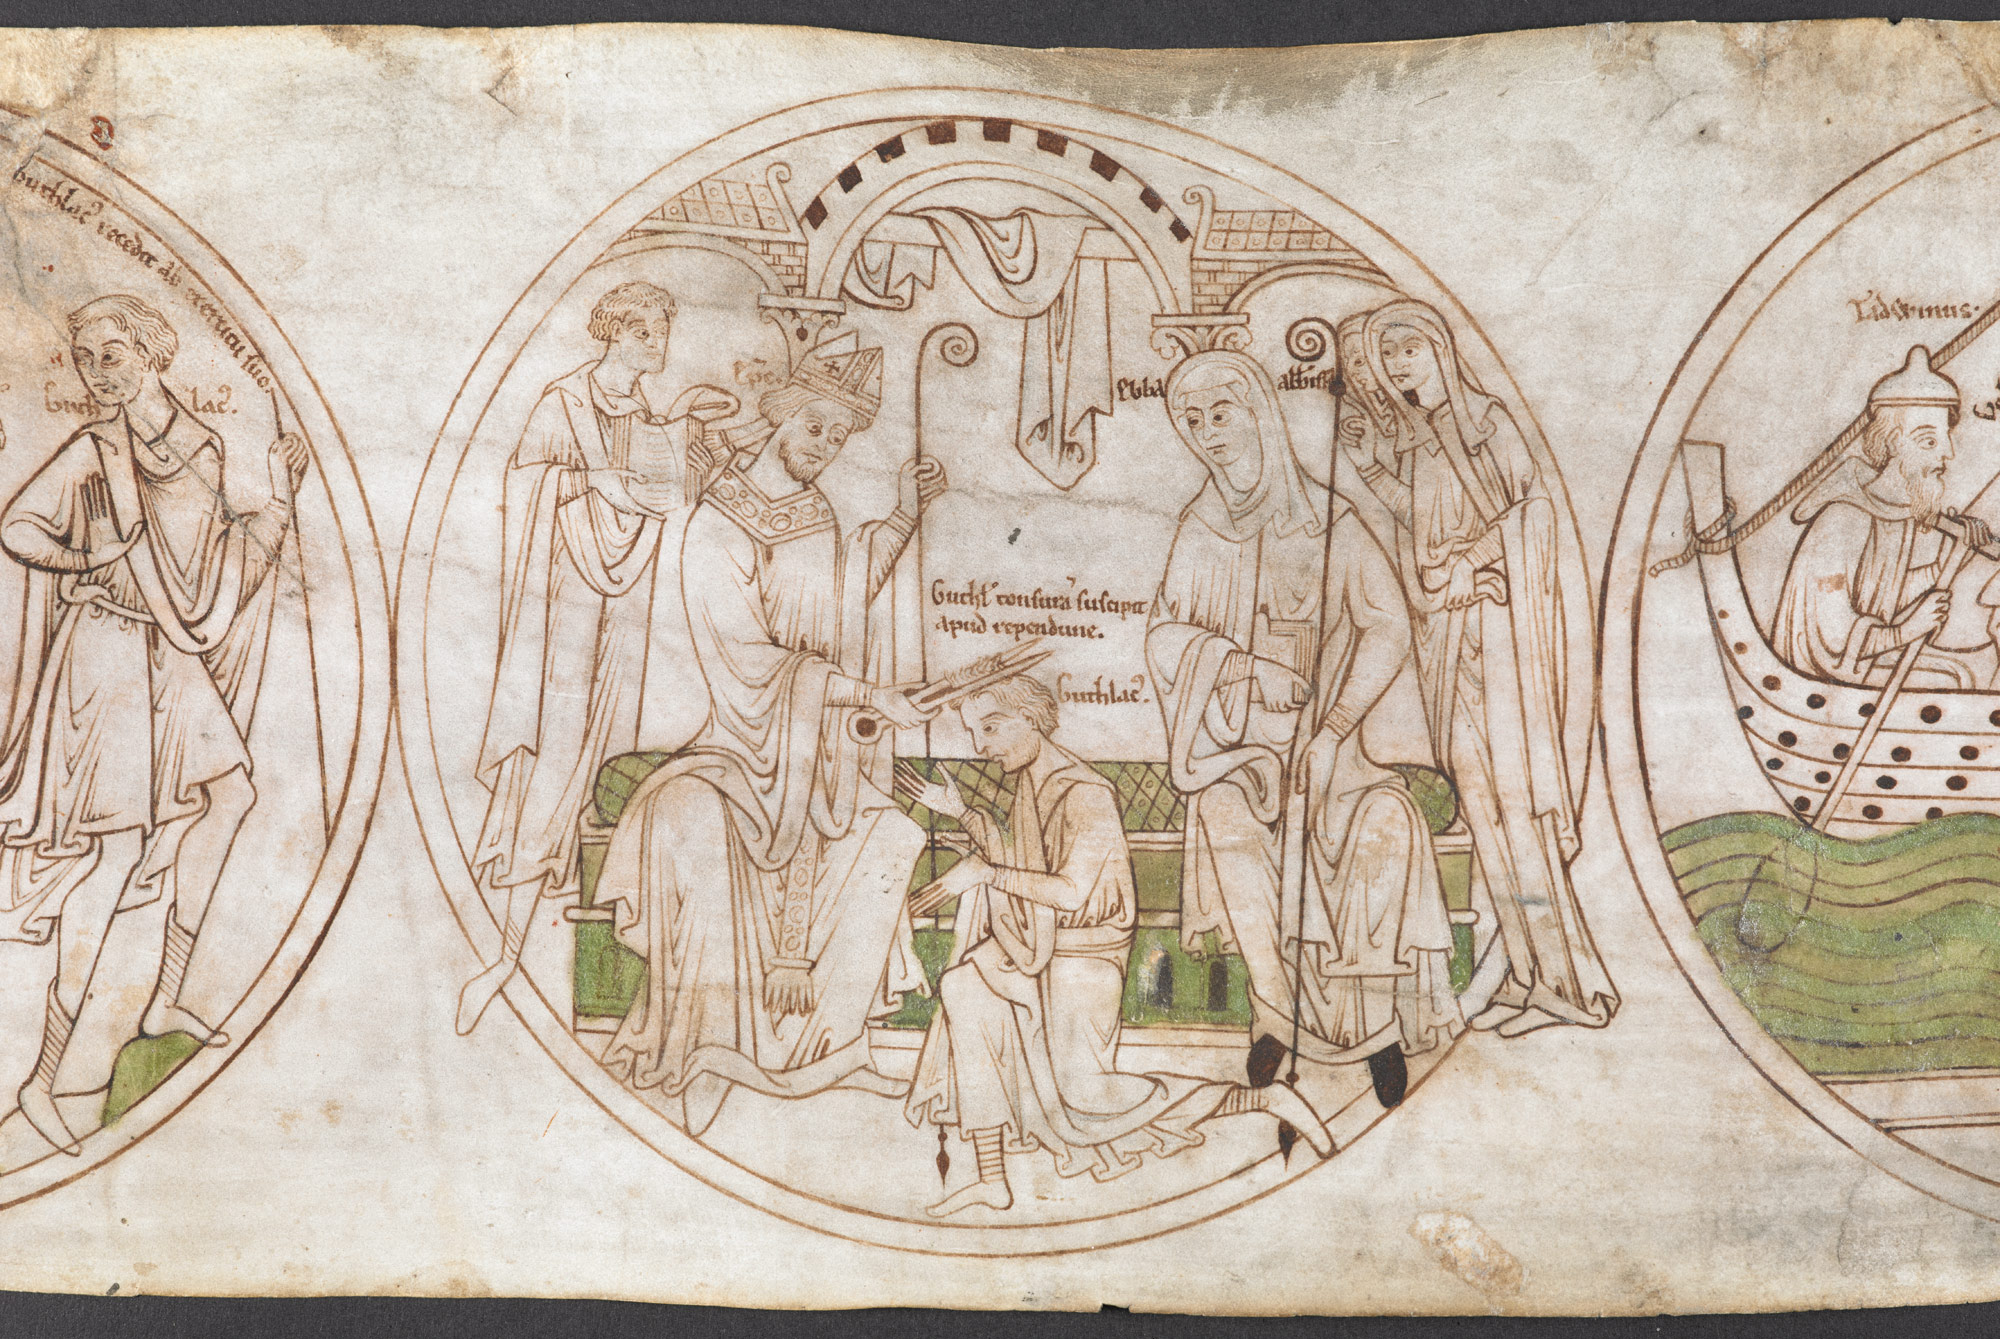 Guthlac' recedit ab exercitu suo.
Guth lac'.
ep̄c.
Ebba
abb'issa
Guthl' tonsurā suscipit
apud rependune.
Guthlac'.
Tadwinus.